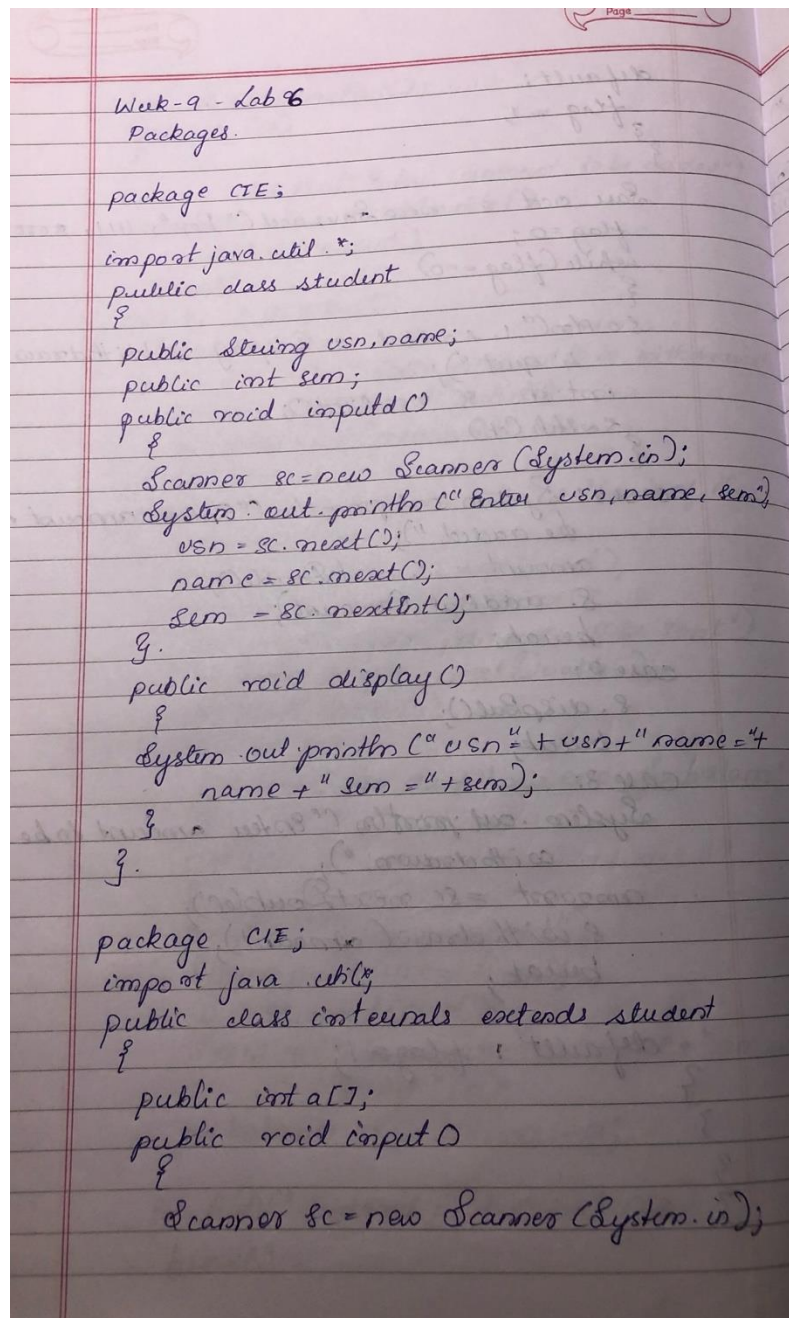 Page
Week-9 - Lab 6
Packages.
package CIE;
import java.util.*;
public class student
{
public String usn, name;
public int sem;
public void inputd()
{
Scanner sc = new Scanner (System.in);
System.out.println ("Enter usn, name, sem");
usn = sc.next();
name = sc.next();
sem = sc.nextInt();
}.
public void display()
{
System.out.println ("usn" = + usn + " name = "+
name + " sem = " + sem);
}
}.
package CIE;
import java.util*;
public class internals extends student
{
public int a[];
public void input()
{
Scanner sc = new Scanner (System.in);